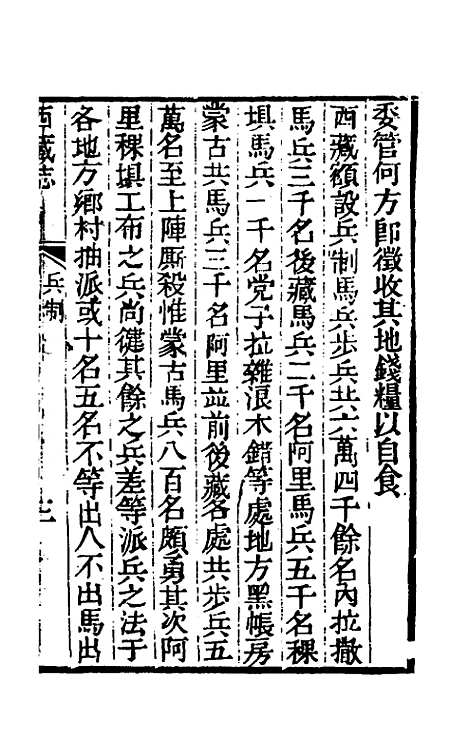 委管何方即徵收其地錢糧以自食
西藏額設兵制馬兵步兵共六萬四千餘名內拉撒
馬兵三千名後藏馬兵二千名阿里馬兵五千名稞
埧馬兵一千名党子拉雜浪木錯等處地方黑帳房
蒙古共馬兵三千名阿里並前後藏各處共步兵五
萬名至上陣厮殺惟蒙古馬兵八百名頗勇其次阿
里稞埧工布之兵尚健其餘之兵差等派兵之法于
各地方鄉村抽派或十名五名不等出人不出馬出
西藏志
兵制